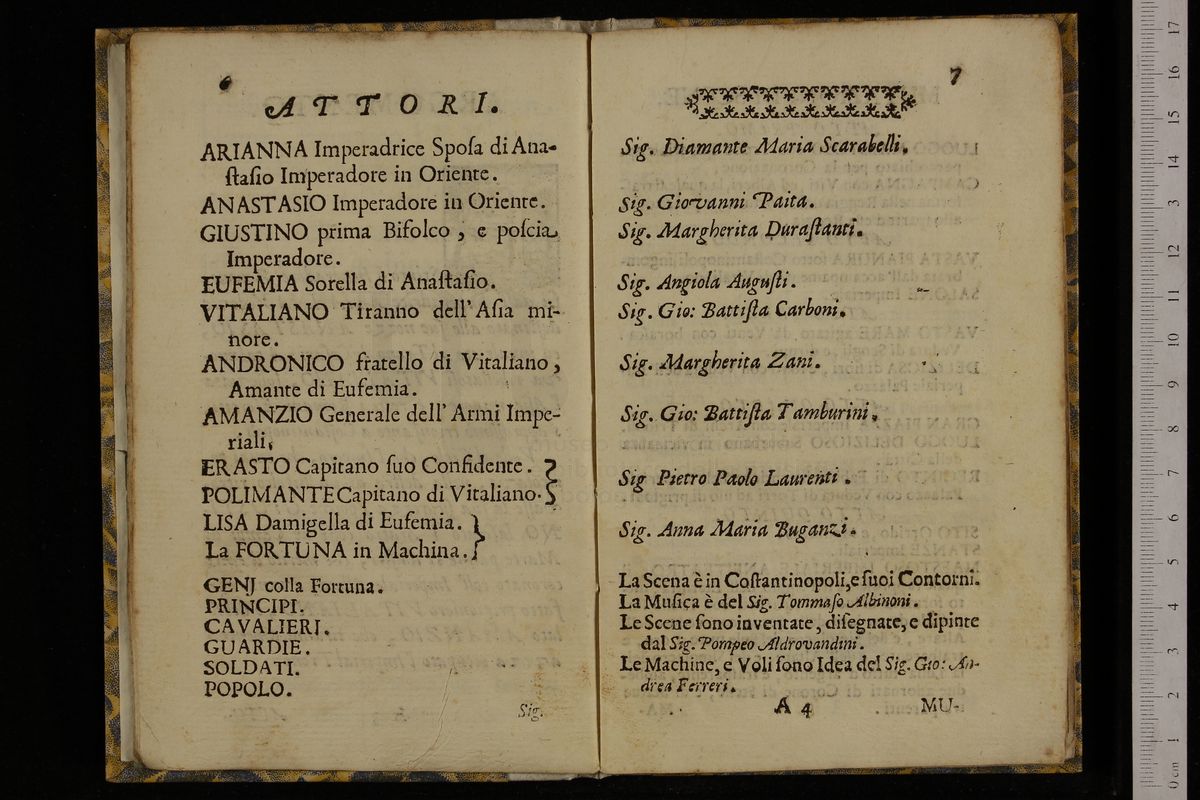 6
ATTORI.
ARIANNA Imperadrice Sposa di Ana-
stasio Imperadore in Oriente.
ANASTASIO Imperadore in Oriente.
GIUSTINO prima Bifolco, e poscia
Imperadore.
EUFEMIA Sorella di Anastasio.
VITALIANO Tiranno dell' Asia mi-
nore.
ANDRONICO fratello di Vitaliano,
Amante di Eufemia.
AMANZIO Generale dell' Armi Impe-
riali.
ERASTO Capitano suo Confidente.
POLIMANTE Capitano di Vitaliano.
LISA Damigella di Eufemia.
La FORTUNA in Machina.
GENJ colla Fortuna.
PRINCIPI.
CAVALIERI.
GUARDIE.
SOLDATI.
POPOLO.
Sig.
7
Sig. Diamante Maria Scarabelli.
Sig. Giovanni Paita.
Sig. Margherita Durastanti.
Sig. Angiola Augusti.
Sig. Gio: Battista Carboni.
Sig. Margherita Zani.
Sig. Gio: Battista Tamburini.
Sig Pietro Paolo Laurenti.
Sig. Anna Maria Buganzi.
La Scena è in Costantinopoli, e suoi Contorni.
La Musica è del Sig. Tommaso Albinoni.
Le Scene sono inventate, disegnate, e dipinte
dal Sig. Pompeo Aldrovandini.
Le Machine, e Voli sono Idea del Sig. Gio: An-
drea Ferreri.
A 4 MU-
0 cm 1 2 3 4 5 6 7 8 9 10 11 12 13 14 15 16 17